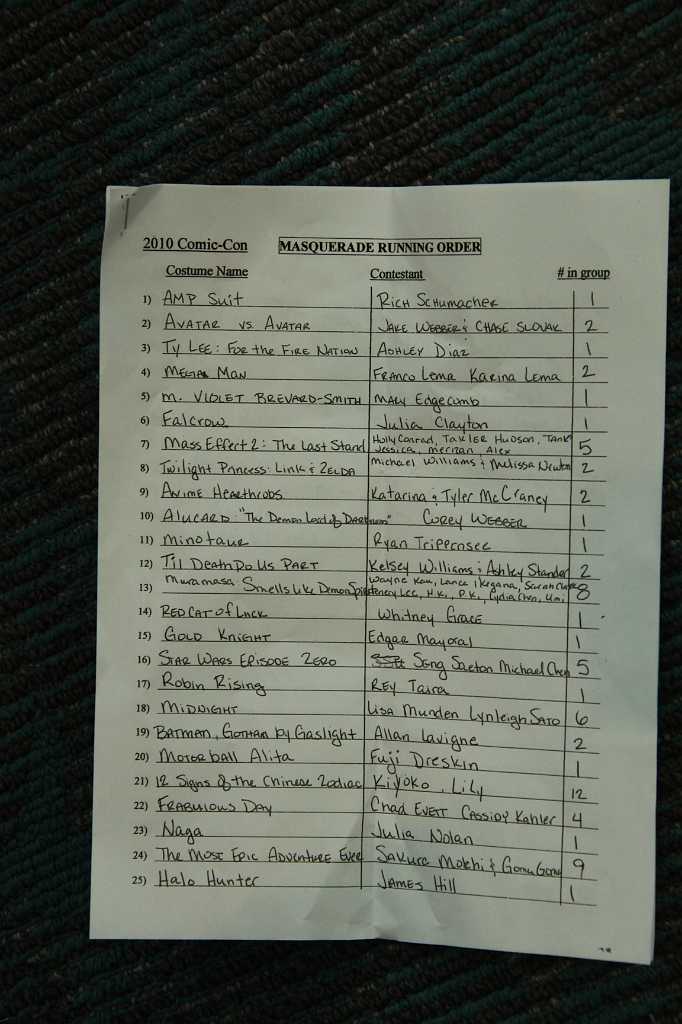 2010 Comic-Con MASQUERADE RUNNING ORDER
Costume Name Contestant # in group
1) AMP Suit Rich Schumacher 1
2) AVATAR VS. AVATAR JAKE WEBBER & CHASE SLOVAK 2
3) Ty LEE: FOR the FIRE NATION ASHLEY Diaz 1
4) MEGA MAN FRANCO Lema Karina Lema 2
5) M. VIOLET BREVARD-SMITH MARY Edgecomb 1
6) Falcrow Julia Clayton 1
7) Mass Effect 2: The Last Stand Holly Conrad, Hudson, TANK Jessica, Alex 5
8) Twilight Princess: Link & ZELDA Michael Williams & Melissa Newton 2
9) ANIME Hearthrobs Katarina & Tyler McCraney 2
10) ALUCARD "The Demon Lord of Darkness" COREY WEBBER 1
11) Minotaur Ryan 1
12) Til Death Do Us PART Kelsey Williams & Ashley Stander 2
13) Muramasa Smells Like Demon Spirit Wayne Kaa, Lance Ikegana, H.K., P.K., Lydia Chen, 8
14) RED CAT of Luck Whitney Grace 1
15) GOLD KNIGHT Edgar Mayoral 1
16) STAR WARS EPISODE ZERO Song Saeton Michael Chen 5
17) Robin Rising REY Taira 1
18) MIDNIGHT Lisa Munden Lynleigh SATO 6
19) BATMAN, GOTHAM by Gaslight Allan Lavigne 2
20) Motorball Alita Fuji Dreskin 1
21) 12 Signs of the Chinese Zodiac Kiyoko, Lily 12
22) FRABJIOUS DAY Chad EVETT CASSIDY Kahler 4
23) Naga Julia Nolan 1
24) The MOST EPIC ADVENTURE EVER Sakura Mokhi & Gomu Gomu 9
25) Halo Hunter JAMES Hill 1